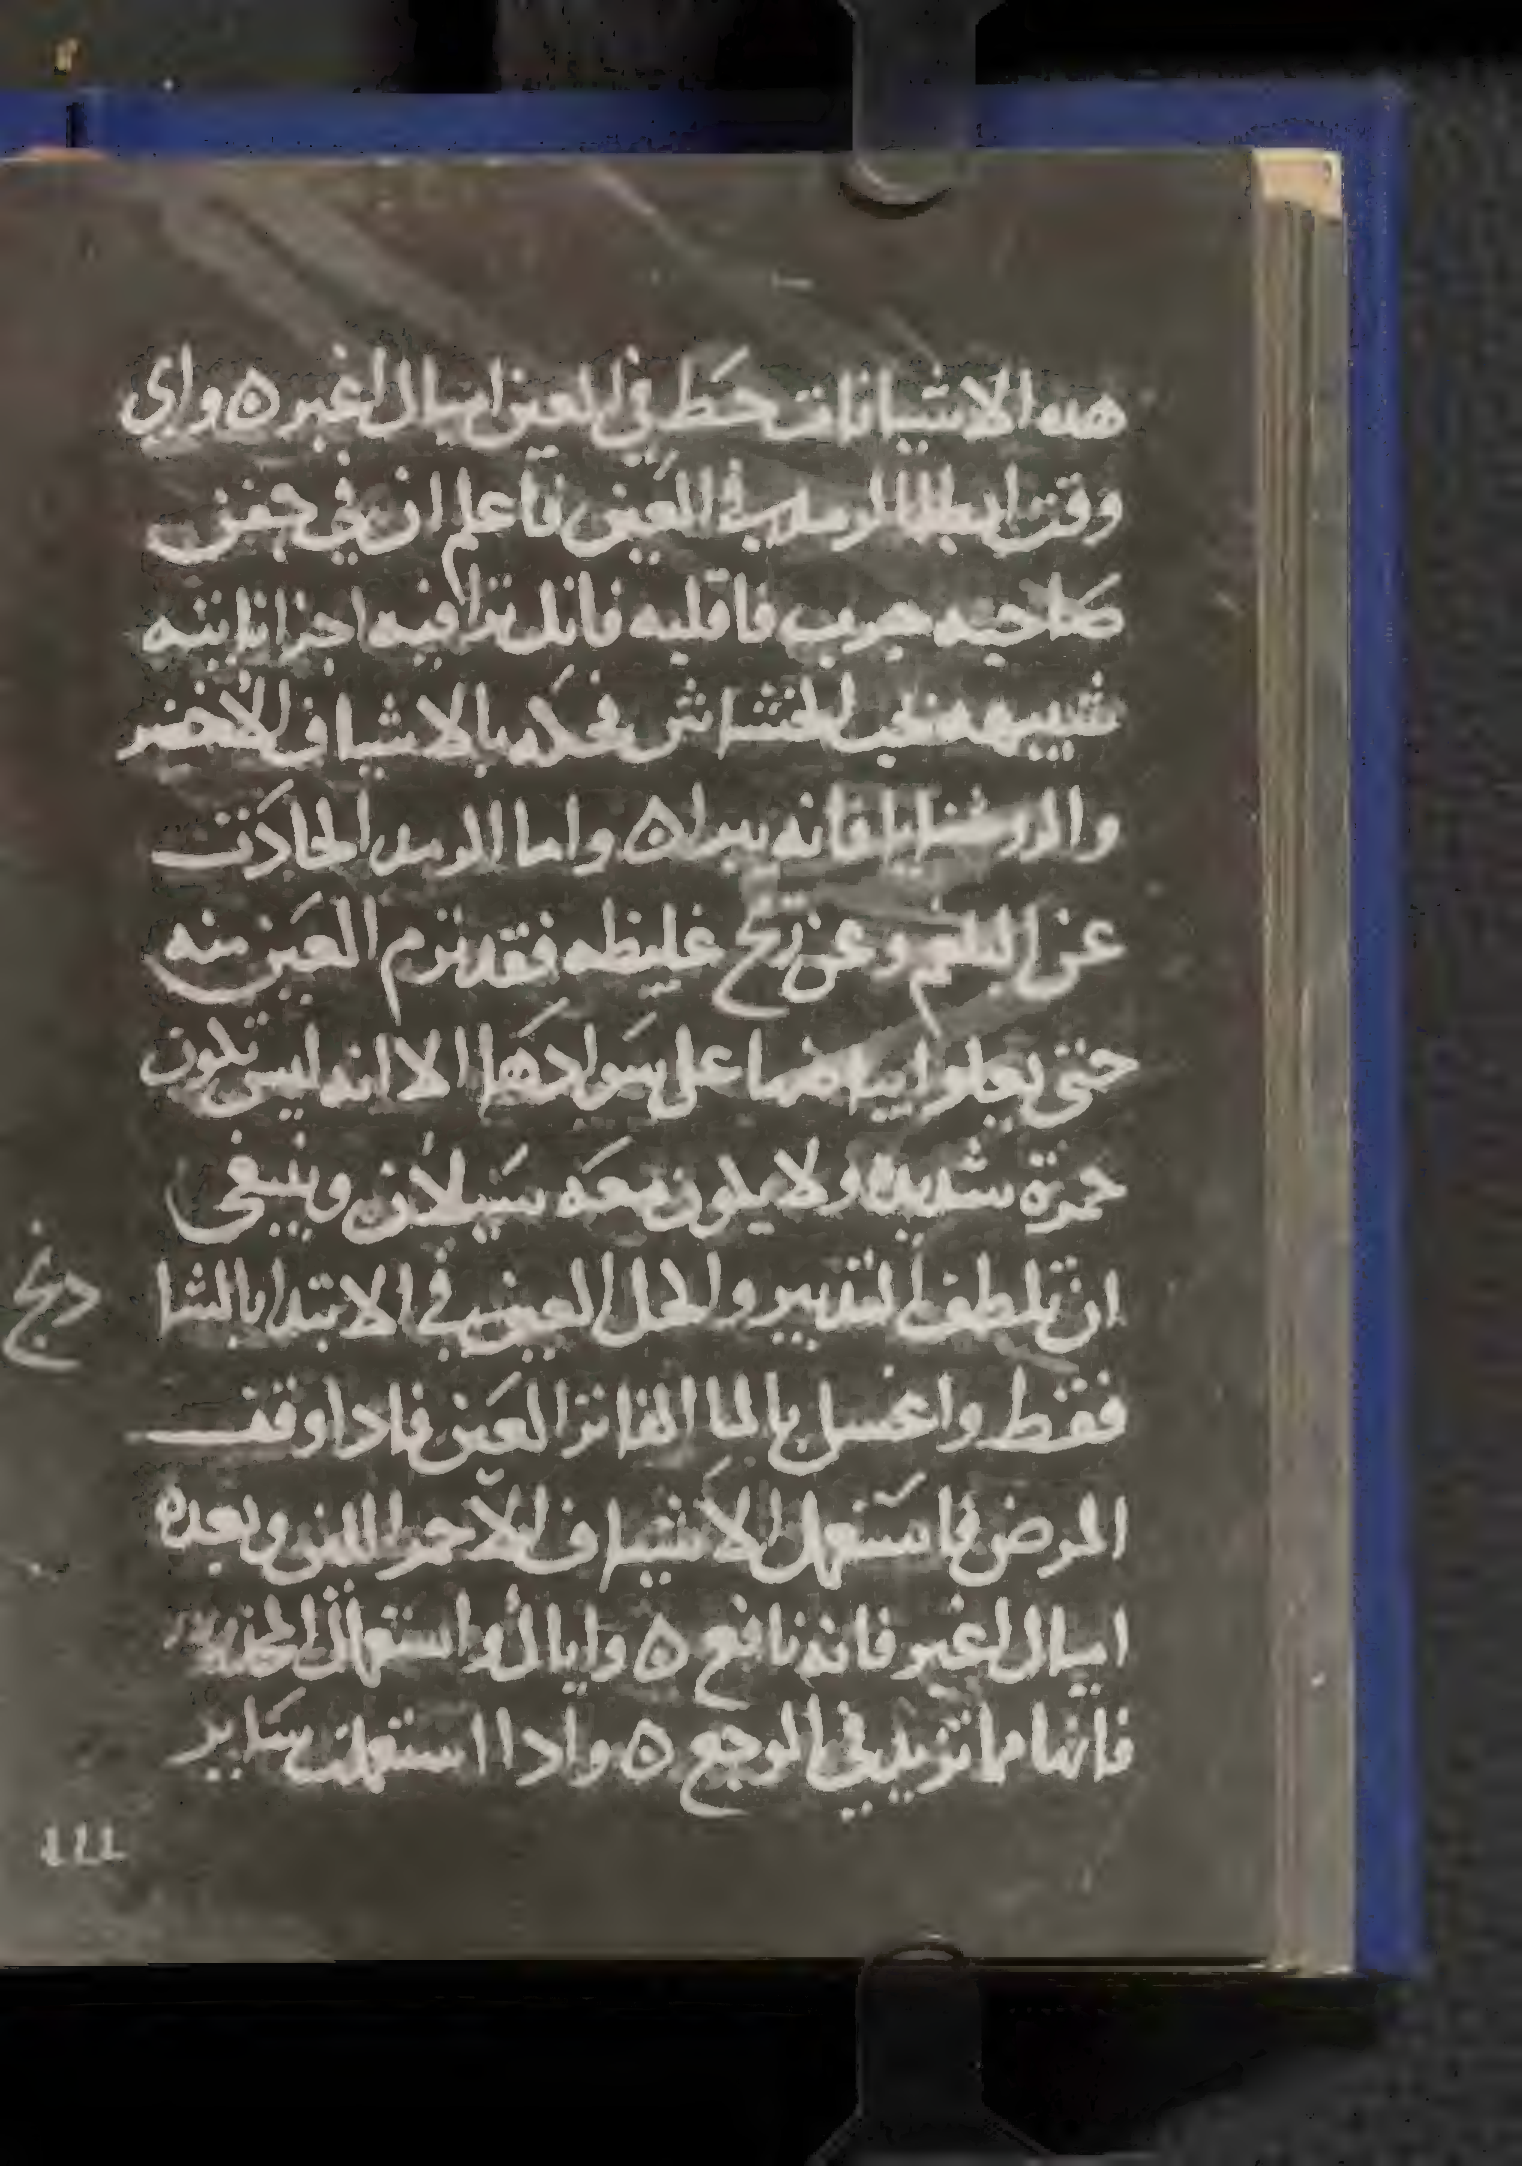 هده الاشيانات حط في العين اميال اغبر ٥ واي
وقت ابطا الرمد في العين فاعلم ان في جفن
صاحبه جرب فاقلبه فانك ترا فيه اجزا ناتيه
شبيهه بحب الخشخاش فحكه بالاشياف الاخضر
والروشنايا فانه يبرا ٥ واما الرمد الحادث
عن البلغم وعن ريح غليظه فقد ترم العين منه
حتى يعلوا بياضها على سوادها الا انه ليس تكون
حمرة شديده ولا يكون معه سيلان وينبغي
ان تلطف التدبير واكحل العين في الابتدا بالشا
دنج
فقط واغسل بالما الفاتر العين فادا وقف
المرض فاستعمل الاشياف الاحمر اللين وبعده
اميال اغبر فانه نافع ٥ واياك واستعمال المخدره
فانها مما تزيد في الوجع ٥ وادا استعملت ساير